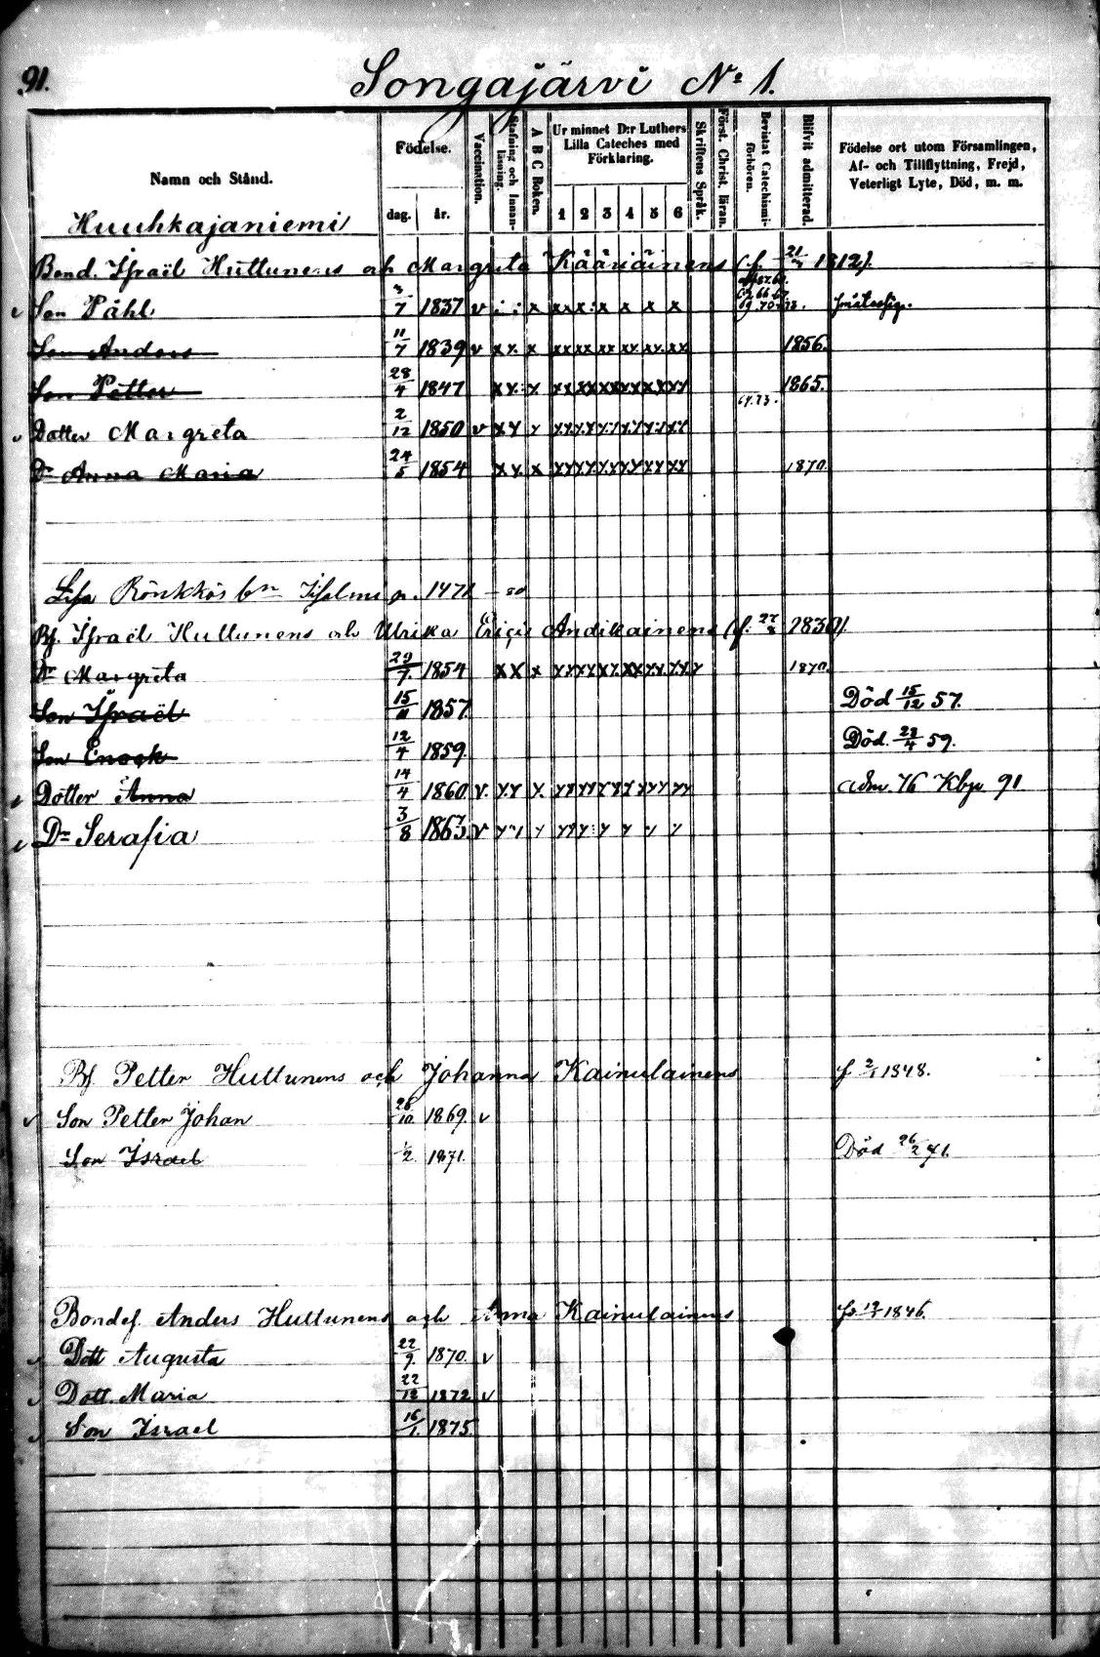 91.
Songajärvi No 1.
Namn och Stånd.
Födelse.
dag. år.
Vaccination.
Stafning och Innan-läsning.
A B C Boken.
Ur minnet D:r Luthers
Lilla Cateches med
Förklaring.
1 2 3 4 5 6
Skriftens Språk.
Först. Christ. läran.
Bevistat Catechismi-förhören.
Blifvit admitterad.
Födelse ort utom Församlingen,
Af- och Tillflyttning, Frejd,
Veterligt Lyte, Död, m. m.
Huuhkajaniemi
Bond. Israël Huttunens och Margreta Kääriäinens (f. 21/ 1812).
v Son Påhl 3/7 1837 v : : x x x x : x x x x 69. 70
Son Anders 11/7 1839 v x x x xx xx xx xx xx xx 1856.
Son Petter 28/4 1847 x x x xx xx xx xx xx xx 1865.
69.73.
v Dotter Margreta 2/12 1850 v x x x xx xx xx xx xx xx
Dr Anna Maria 24/5 1854 x x x xx xx xx xx xx xx 1870
Lisa Rönkkös frn Iisalmi p. 1471
Bf. Israël Huttunens och Ulrika Andikainens (f. 27/ 1830).
Dr Margreta 29/7 1854 x x x xx xx xx xx xx xx x 1870.
Son Israël 15/11 1857 Död 15/12 57.
Son Enock 12/4 1859. Död. 23/4 59.
Dotter Anna 14/4 1860 v. x x x xx xx xx xx xx xx adm. 76 91
Dr Serafia 3/8 1863 v x x x xx x x x x x
Bf. Petter Huttunens och Johanna Kainulainens f 2/1 1848.
v Son Petter Johan 26/10 1869. v
Son Israel 1/2. 1871. Död 26/2 71.
Bondes. Anders Huttunens och Anna Kainulainens f. 1846.
v Dott Augusta 22/9. 1870. v
v Dott. Maria 22/12 1872 v
v Son Israel 16/1. 1875.